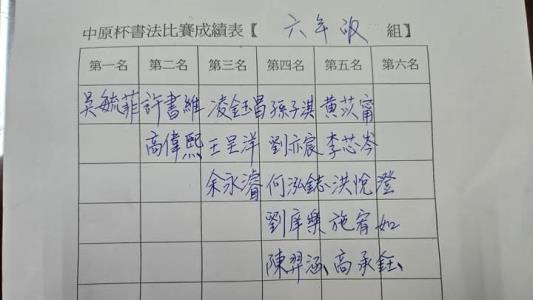 中原杯書法比賽成績表【 六年級 組】
第一名 第二名 第三名 第四名 第五名 第六名
吳毓菲 許書維 凌鈺昌 孫子淇 黃莰甯
高偉熙 王呈洋 劉亦宸 李芯岑
余永濬 何泓鋕 洪悅澄
劉庠樂 施宥如
陳羿涵 高承鈺